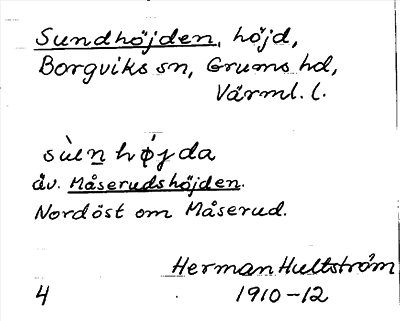 Sundhöjden, höjd,
Borgviks sn, Grums hd,
Värml. l.
sùen hǿjda
äv. Måserudshöjden.
Nordöst om Måserud.
Herman Hultström
4 1910-12